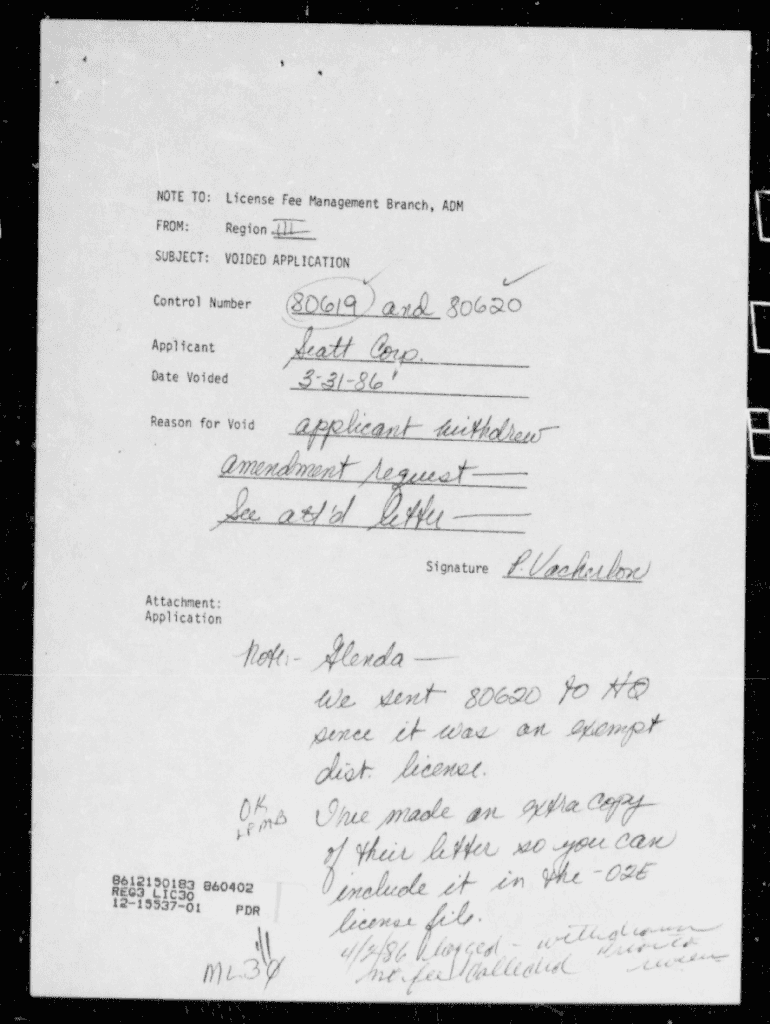 NOTE TO: License Fee Management Branch, ADM
FROM: Region III
SUBJECT: VOIDED APPLICATION
Control Number 80619 and 80620
Applicant Scatt Corp.
Date Voided 3-31-86
Reason for Void applicant withdrew
amendment request
See att'd letter
Signature P. Vacherlon
Attachment:
Application
Note:- Glenda —
We sent 80620 to HQ
since it was an exempt
dist. license.
OK I've made an extra copy
LFMB of their letter so you can
include it in the -02E
license file.
8612150183 860402
REG3 LIC30
12-15537-01 PDR
4/2/86 logged - withdrawn
prior to
no fee collected review
ML30